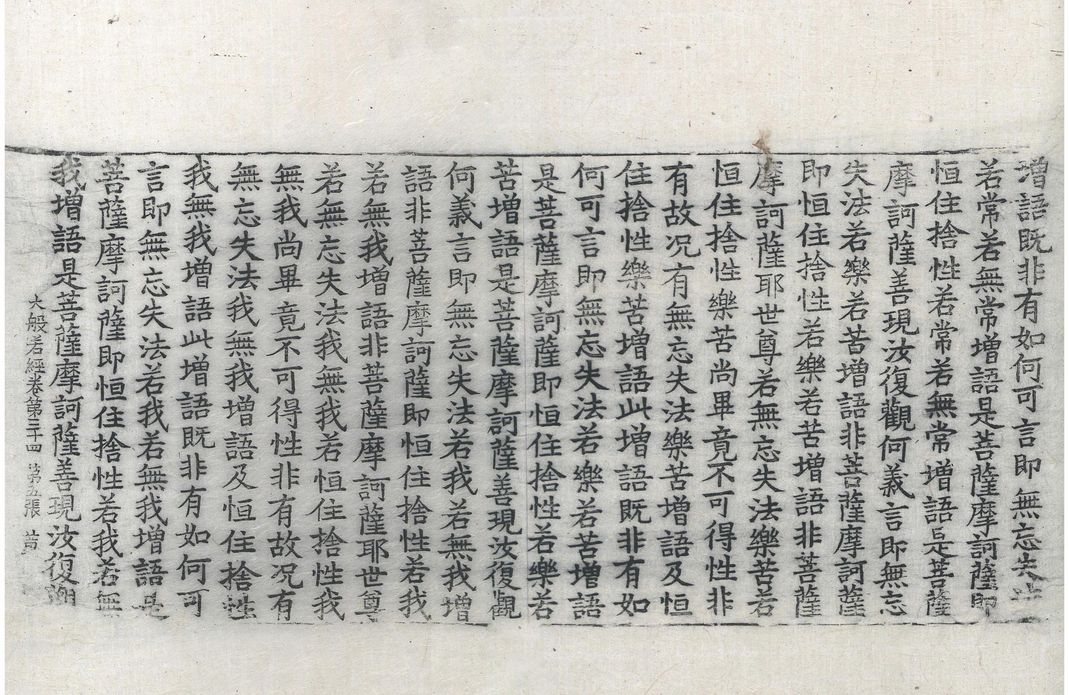 增語既非有如何可言即無忘失法
若常若無常增語是菩薩摩訶薩即
恒住捨性若常若無常增語是菩薩
摩訶薩善現汝復觀何義言即無忘
失法若樂若苦增語非菩薩摩訶薩
即恒住捨性若樂若苦增語非菩薩
摩訶薩耶世尊若無忘失法樂苦若
恒住捨性樂苦尚畢竟不可得性非
有故况有無忘失法樂苦增語及恒
住捨性樂苦增語此增語既非有如
何可言即無忘失法若樂若苦增語
是菩薩摩訶薩即恒住捨性若樂若
苦增語是菩薩摩訶薩善現汝復觀
何義言即無忘失法若我若無我增
語非菩薩摩訶薩即恒住捨性若我
若無我增語非菩薩摩訶薩耶世尊
若無忘失法我無我若恒住捨性我
無我尚畢竟不可得性非有故况有
無忘失法我無我增語及恒住捨性
我無我增語此增語既非有如何可
言即無忘失法若我若無我增語是
菩薩摩訶薩即恒住捨性若我若無
我增語是菩薩摩訶薩善現汝復觀
大般若經卷第三十四 第五張